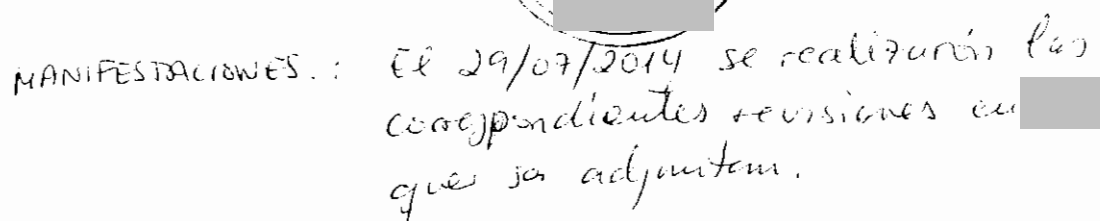 MANIFESTACIONES.: El 29/07/2014 se realizarón las
correspondientes revisiones en
que se adjuntan.